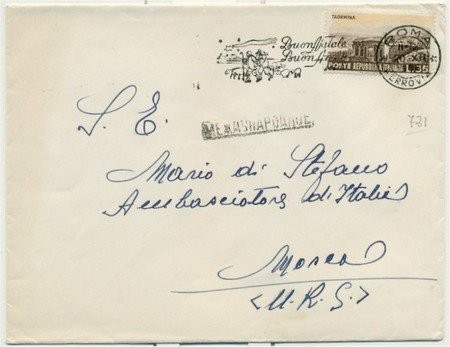 TAORMINA
ROMA
Buon Natale
Buon Anno
POSTE REPUBBLICA ITALIANA
FERROVIA
МЕЖДУНАРОДНОЕ
721
S. E.
Mario di Stefano
Ambasciatore d'Italia
Mosca
<U.R.S.>